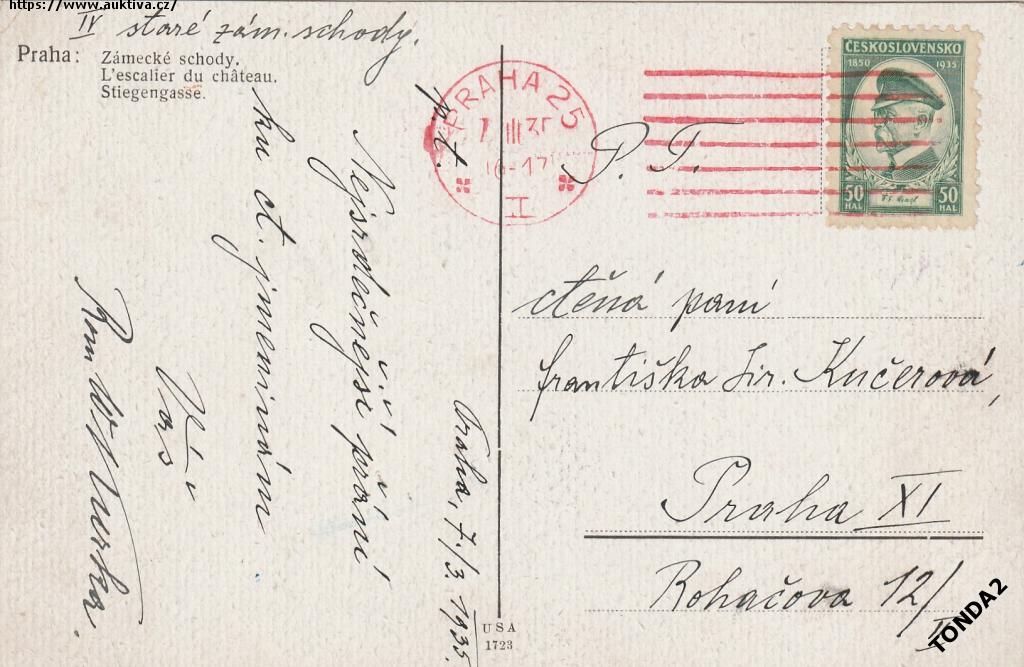 https://www.auktiva.cz/
IV staré zám. schody.
Praha: Zámecké schody.
L'escalier du château.
Stiegengasse.
p. t.
Nejsrdečnejší přání
ku ct. jmeninám
Váš
Praha, 7./3. 1935.
PRAHA 25
7 III 35
16-17
II
ČESKOSLOVENSKO
1850 1935
50 HAL 50 HAL
P. T.
ctěná paní
františka Kučerová,
Praha XI
Rohačova 12/
USA
1723
TONDA2